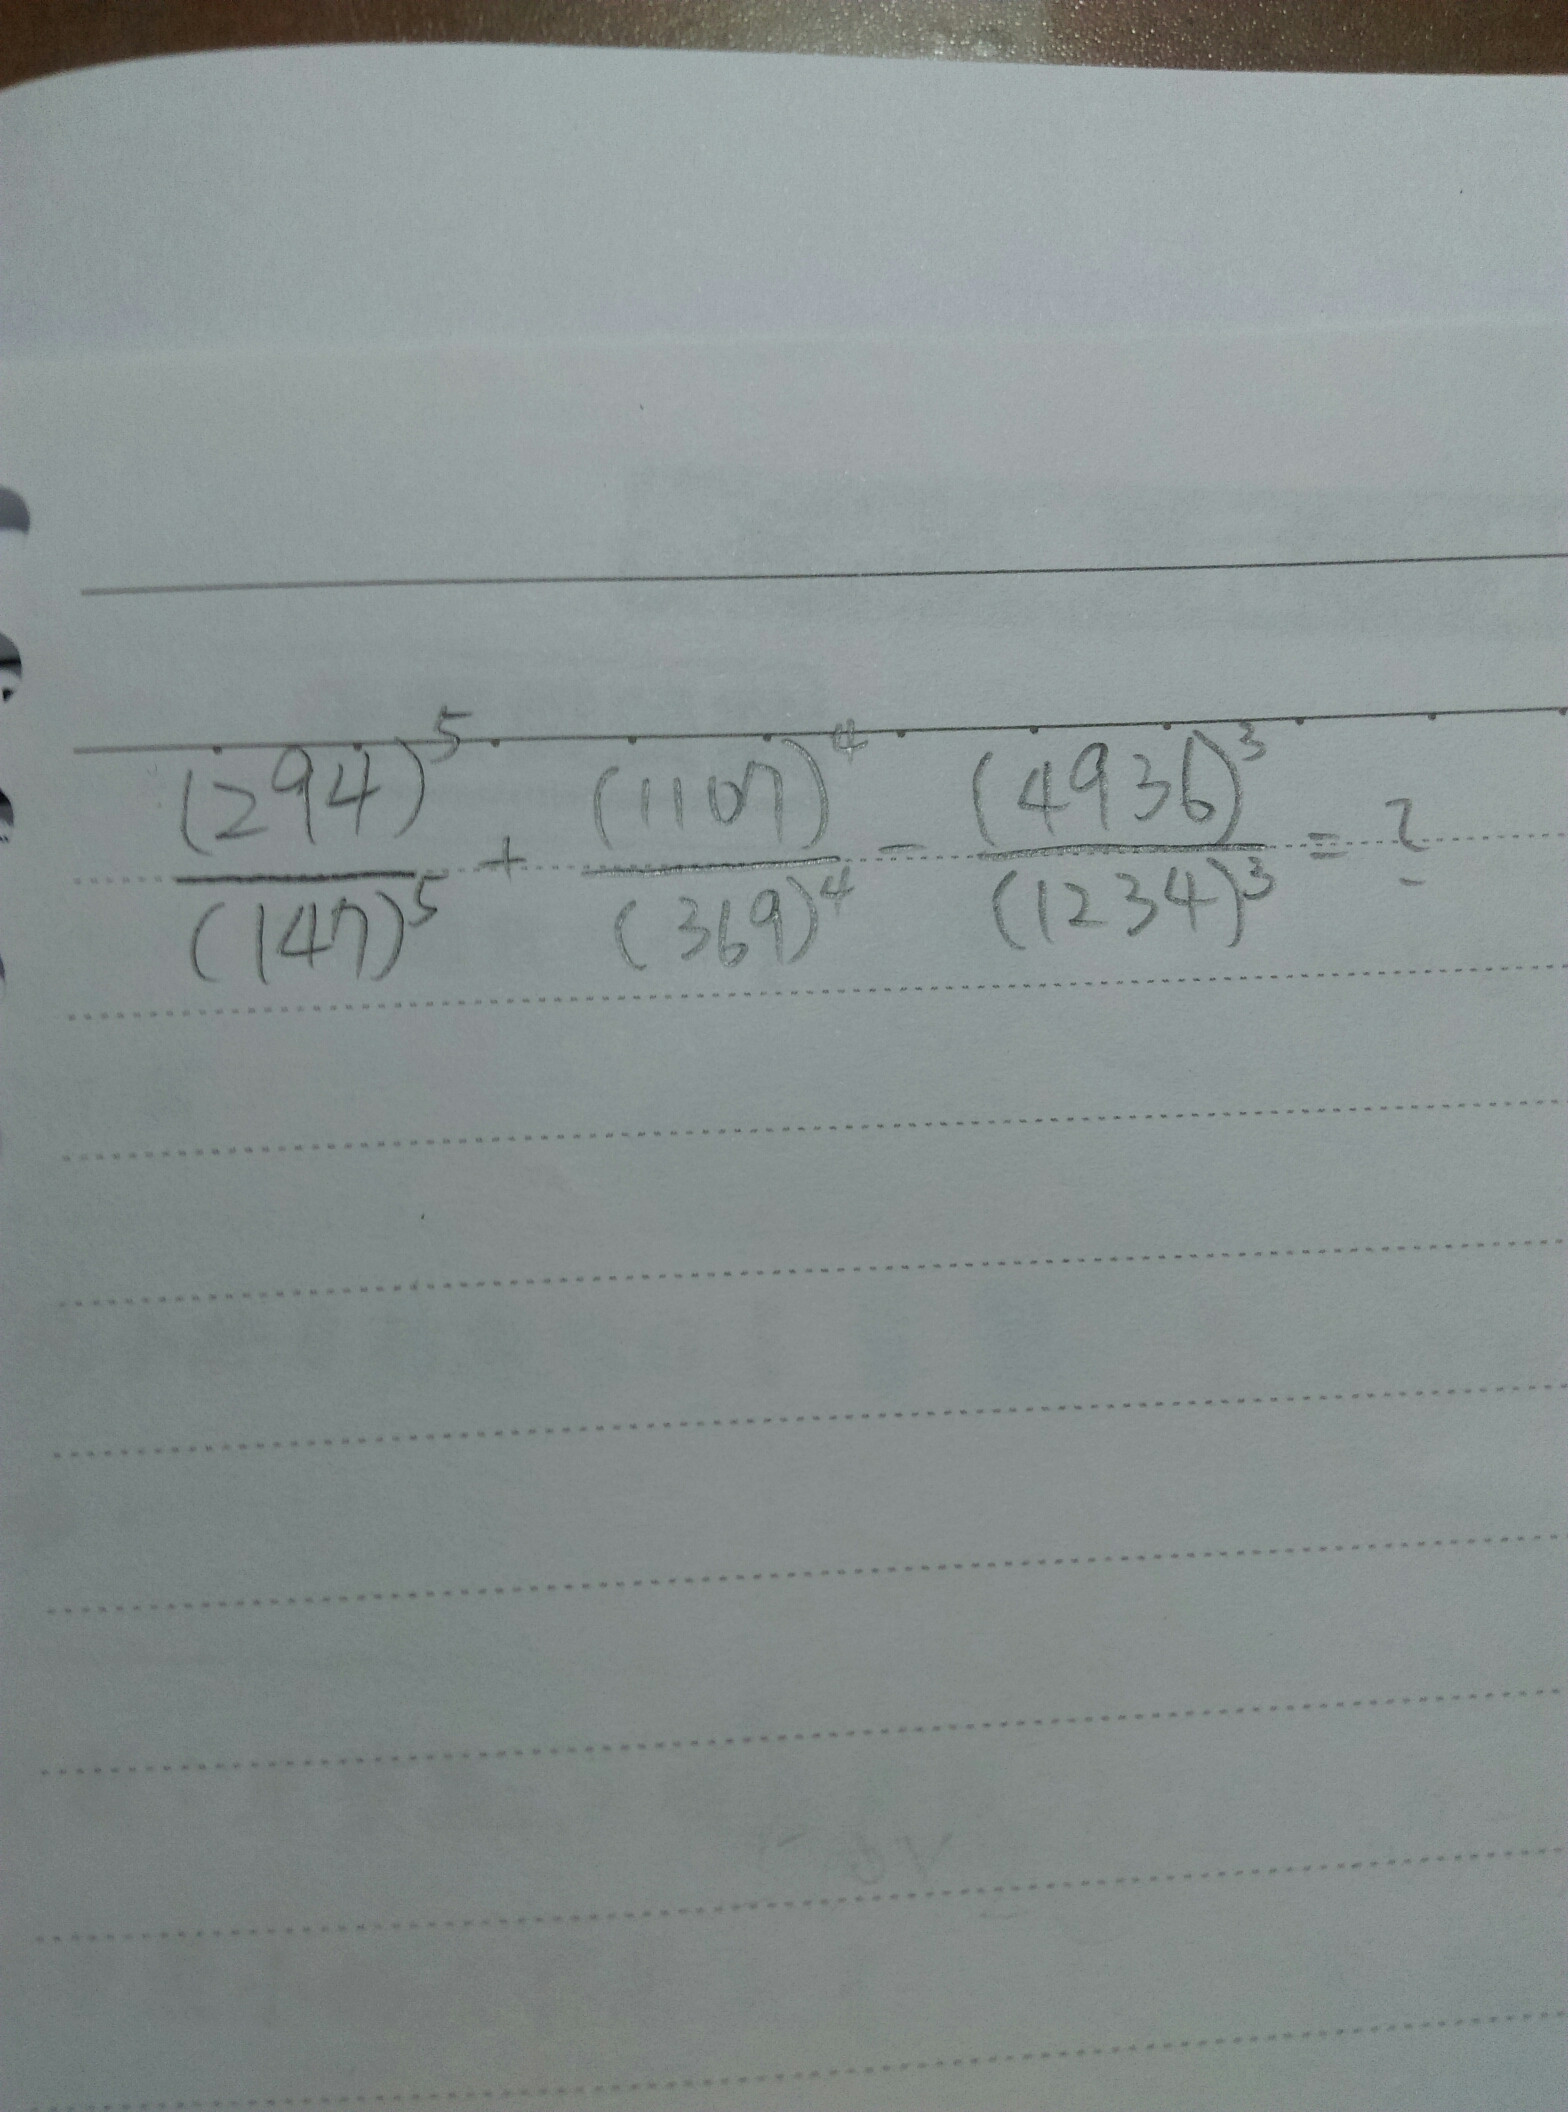 (294)^5/(147)^5 + (1107)^4/(369)^4 - (4936)^3/(1234)^3 = ?